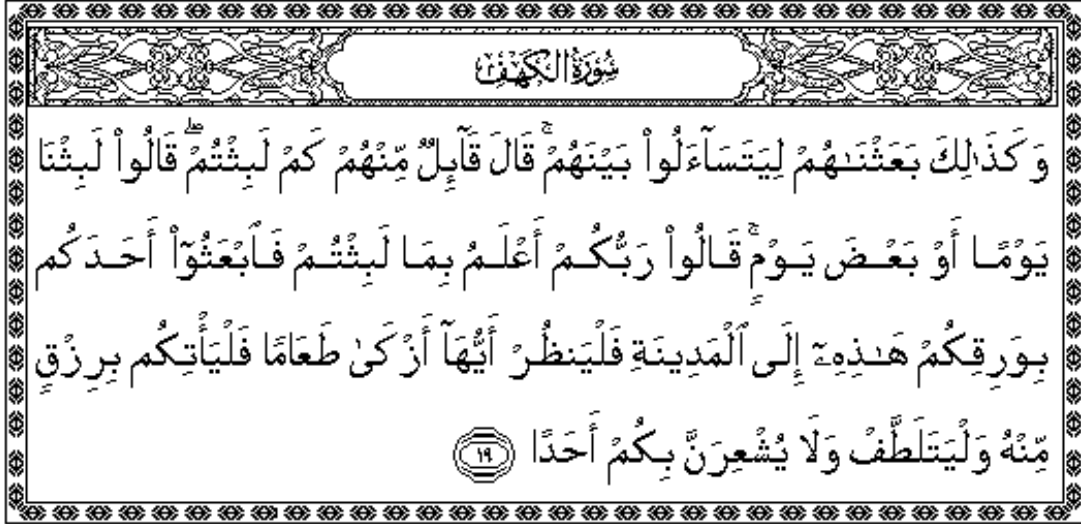 سُورَةُ الكَهْفِ
وَكَذَٰلِكَ بَعَثْنَـٰهُمْ لِيَتَسَآءَلُوا۟ بَيْنَهُمْ ۚ قَالَ قَآئِلٌ مِّنْهُمْ كَمْ لَبِثْتُمْ ۖ قَالُوا۟ لَبِثْنَا
يَوْمًا أَوْ بَعْضَ يَوْمٍ ۚ قَالُوا۟ رَبُّكُمْ أَعْلَمُ بِمَا لَبِثْتُمْ فَٱبْعَثُوٓا۟ أَحَدَكُم
بِوَرِقِكُمْ هَـٰذِهِۦٓ إِلَى ٱلْمَدِينَةِ فَلْيَنظُرْ أَيُّهَآ أَزْكَىٰ طَعَامًا فَلْيَأْتِكُم بِرِزْقٍ
مِّنْهُ وَلْيَتَلَطَّفْ وَلَا يُشْعِرَنَّ بِكُمْ أَحَدًا ١٩